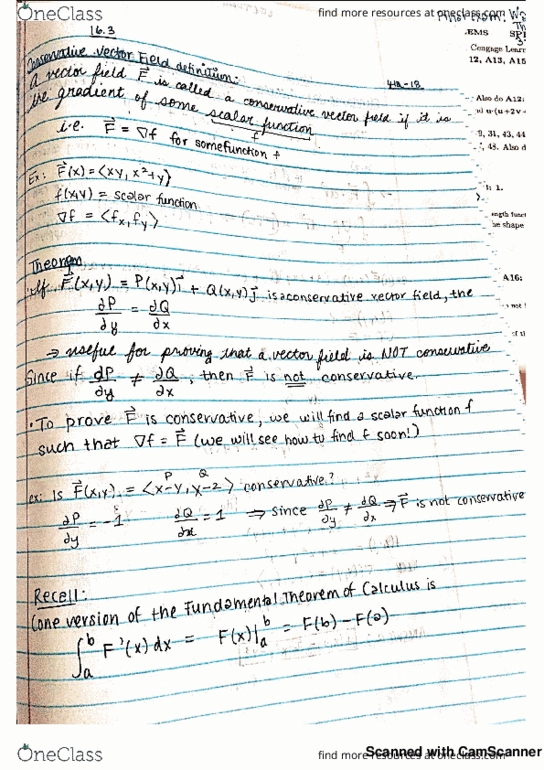 OneClass
find more resources at oneclass.com
16.3
Conservative Vector Field definition:
A vector field F⃗ is called a conservative vector field if it is
the gradient of some scalar function
f
i.e. F⃗ = ∇f for somefunction f
Ex: F⃗(x) = <xy, x²+y>
f(x,y) = scalar function
∇f = <fx, fy>
Theorem
If F⃗(x,y) = P(x,y)i⃗ + Q(x,y)j⃗ is a conservative vector field, the
∂P/∂y = ∂Q/∂x
⇒ useful for proving that a vector field is NOT conservative
Since if ∂P/∂y ≠ ∂Q/∂x, then F⃗ is not conservative.
• To prove F⃗ is conservative, we will find a scalar function f
such that ∇f = F⃗ (we will see how to find f soon!)
P Q
ex: Is F⃗(x,y) = <x-y, x-2> conservative?
∂P/∂y = -1 ∂Q/∂x = 1 ⇒ since ∂P/∂y ≠ ∂Q/∂x ⇒ F⃗ is not conservative
Recall:
(one version of the Fundamental Theorem of Calculus is
∫ₐᵇ F'(x) dx = F(x)|ₐᵇ = F(b) - F(a)
.EMS
Cengage Lear
12, A13, A15
Also do A12:
9, 31, 43, 44
, 48. Also d
he shape
A16:
OneClass
find more resources at oneclass.com
Scanned with CamScanner